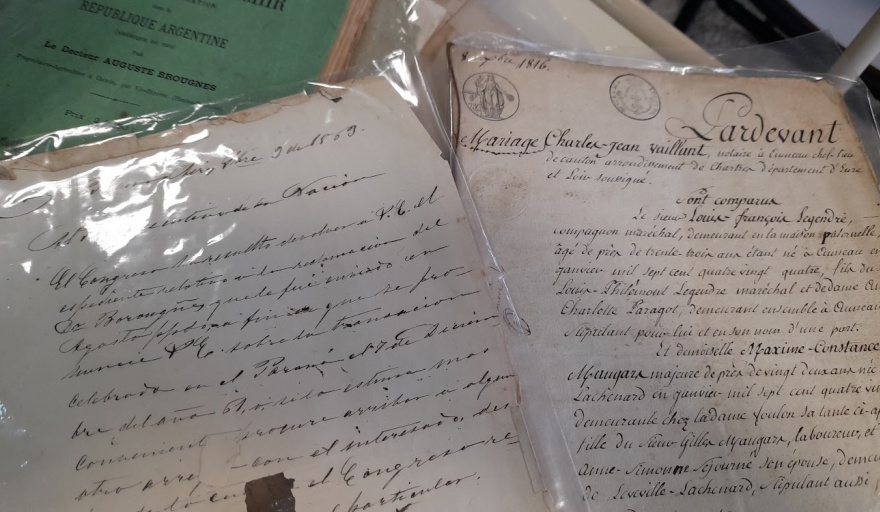 REPUBLIQUE ARGENTINE
PAR
Le Docteur AUGUSTE BROUGNES
Prix
9 de 1869.
de la Nación
El Congreso ha resuelto devolver a V.E. el
espediente relativo a la reclamacion del
Dr Borougnes, que le fué enviado en
Agosto ppdo, a fin de que se pro-
nuncie V.E. sobre la transacion
celebrada en el Paraná el 7 de Diciem-
bre del año 60, si lo estima mas
conveniente procure arribar a algun
otro arre con el interesado, des
de la el Congreso re
particular.
8 1816.
Pardevant
Mariage Charles-Jean Vaillant, notaire à Auneau chef-lieu
de canton arrondissement de Chartres Département d'Eure
et Loir soussigné.
Sont comparus
Le sieur Louis françois Legendre,
compagnon maréchal, demeurant en la maison paternelle,
âgé de près de trente trois ans étant né à Auneau en
janvier mil sept cent quatre vingt quatre, fils du s
Louis-Philémont Legendre maréchal et de dame
Charlotte Paragot, demeurant ensemble à Auneau
stipulant pour lui et en son nom d'une part.
Et demoiselle Maxime-Constance
Maugars majeure de près de vingt deux ans née
Lachenard en janvier mil sept cent quatre vin
demeurante chez la dame foulon sa tante ci-ap
fille du Sieur Gilles Maugars, laboureur, et
anne-Simonne Sejourné son épouse, demeu
de Léveville-Lachenard, stipulant aussi